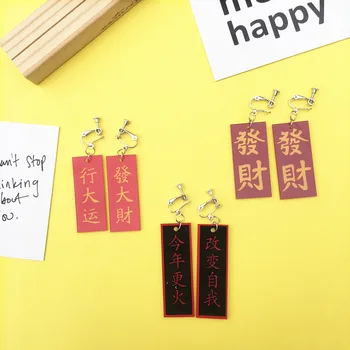 happy
an't stop
hinking
bout
ou.
行大运
發大財
發財
發財
今年更火
改变自我